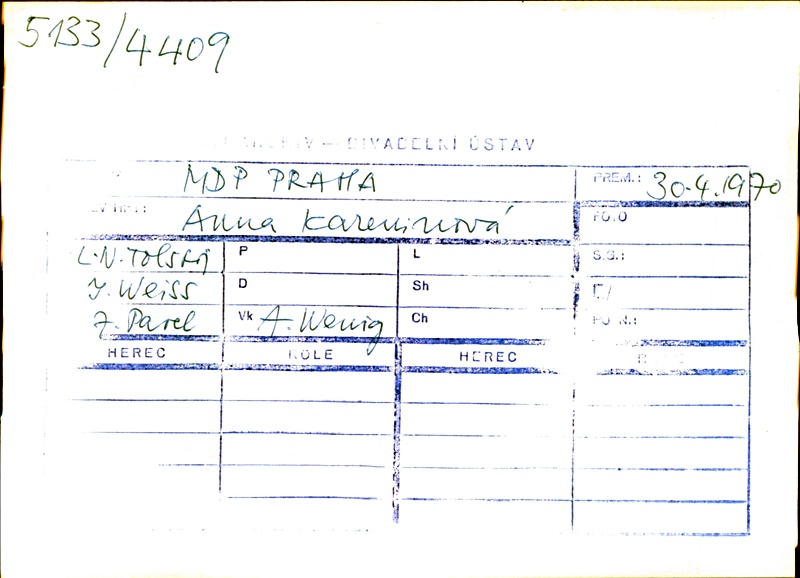 5133/4409
DIVADELNÍ ÚSTAV
MDP PRAHA PREM.: 30.4.1970
Anna Kareninová
L.N. Tolstoj P L S.G.:
J. Weiss D Sh
J. Pavel Vk A. Wenig Ch
HEREC ROLE HEREC